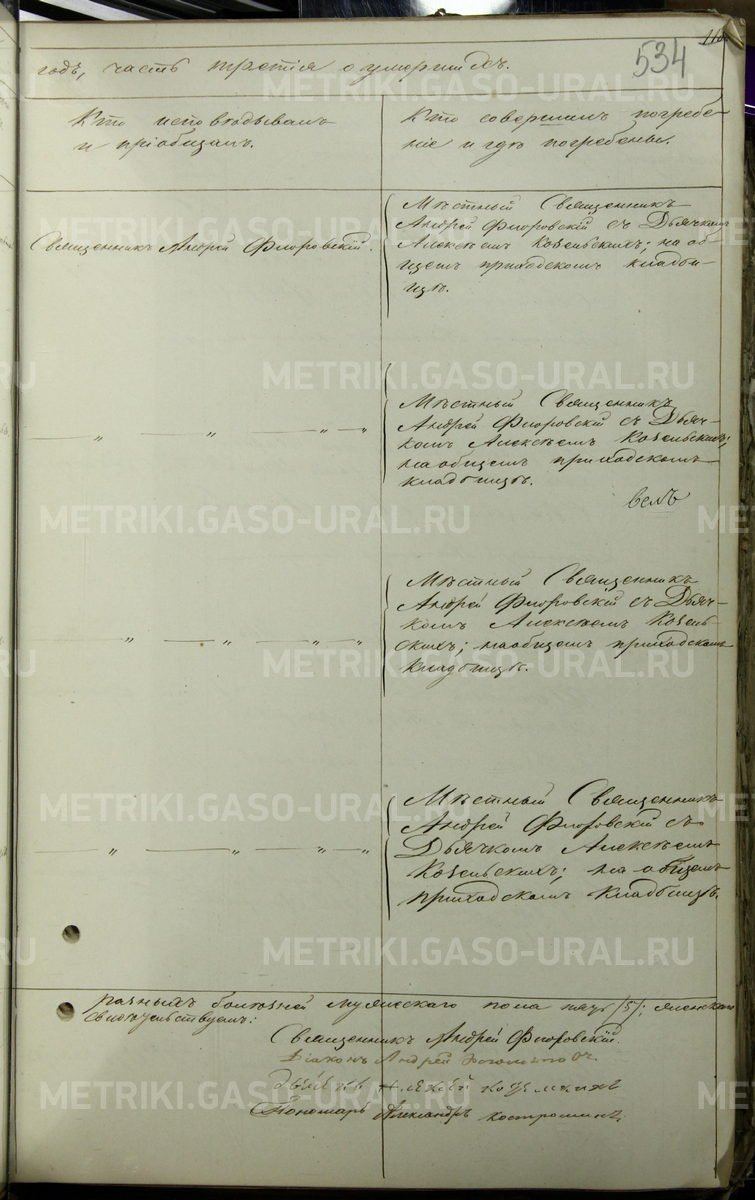 534
годъ, часть третія о умершихъ.
Кто исповѣдывалъ
и пріобщалъ.
Кто совершалъ погребе-
ніе и гдѣ погребены.
Священникъ Андрей Флоровскій.
Мѣстный Священникъ
Андрей Флоровскій съ Дьячкомъ
Алексѣемъ Козельскихъ; на об-
щемъ приходскомъ кладби-
щѣ.
„ „ „ „
Мѣстный Священникъ
Андрей Флоровскій съ Дьяч-
комъ Алексѣемъ Козельскихъ;
на общемъ приходскомъ
кладбищѣ.
„ „ „ „
Мѣстный Священникъ
Андрей Флоровскій съ Дьяч-
комъ Алексѣемъ Козель-
скихъ; на общемъ приходскомъ
кладбищѣ.
„ „ „ „
Мѣстный Священникъ
Андрей Флоровскій съ
Дьячкомъ Алексѣемъ
Козельскихъ; на общемъ
приходскомъ кладбищѣ.
разныхъ болѣзней мужескаго пола пять /5/; женскаго
свидѣтельствуемъ:
Священникъ Андрей Флоровскій.
Діаконъ Андрей
Алексѣй
Пономарь Александръ Костроминъ.
METRIKI.GASO-URAL.RU